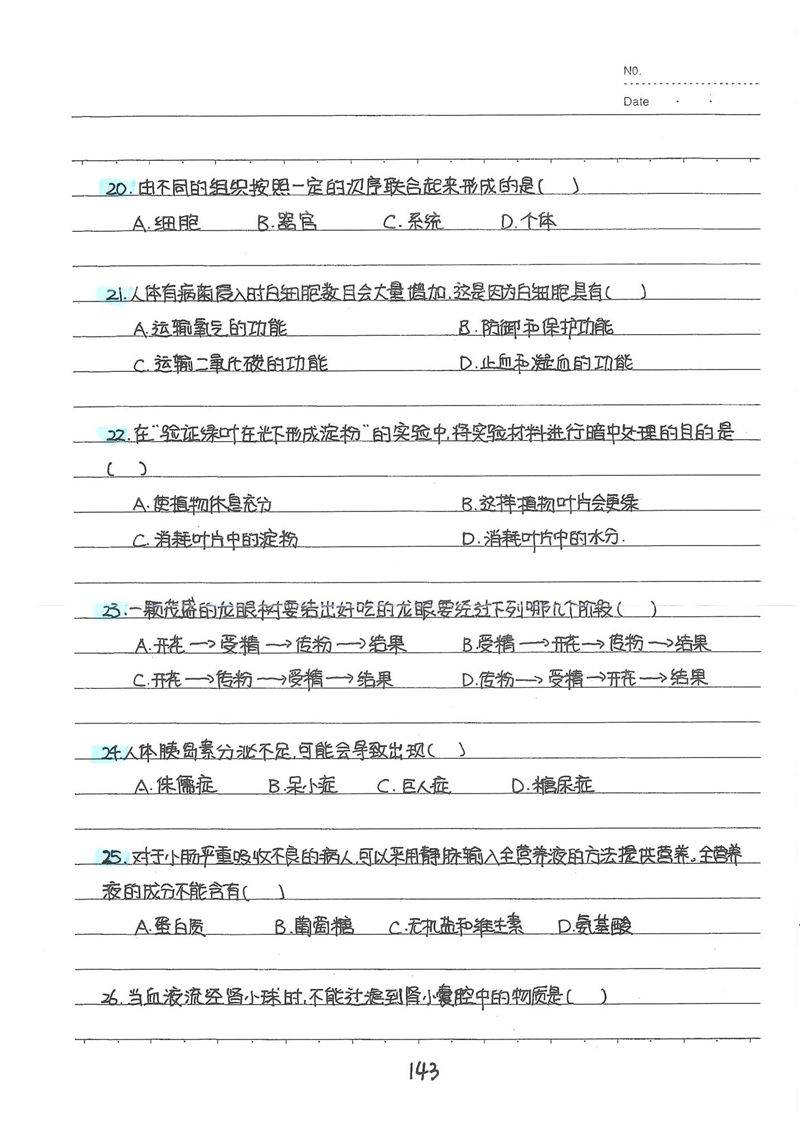 NO.
Date · ·
20.由不同的组织按照一定的次序联合起来形成的是( )
A.细胞 B.器官 C.系统 D.个体
21.人体有病菌侵入时白细胞数目会大量增加,这是因为白细胞具有( )
A.运输氧气的功能 B.防御和保护功能
C.运输二氧化碳的功能 D.止血和凝血的功能
22.在"验证绿叶在光下形成淀粉"的实验中,将实验材料进行暗中处理的目的是
( )
A.使植物休息充分 B.这样植物叶片会更绿
C.消耗叶片中的淀粉 D.消耗叶片中的水分.
23.一颗茂盛的龙眼树要结出好吃的龙眼要经过下列哪几个阶段( )
A.开花→受精→传粉→结果 B.受精→开花→传粉→结果
C.开花→传粉→受精→结果 D.传粉→受精→开花→结果
24.人体胰岛素分泌不足,可能会导致出现( )
A.侏儒症 B.呆小症 C.巨人症 D.糖尿症
25.对于小肠严重吸收不良的病人,可以采用静脉输入全营养液的方法提供营养。全营养
液的成分不能含有( )
A.蛋白质 B.葡萄糖 C.无机盐和维生素 D.氨基酸
26.当血液流经肾小球时,不能过滤到肾小囊腔中的物质是( )
143